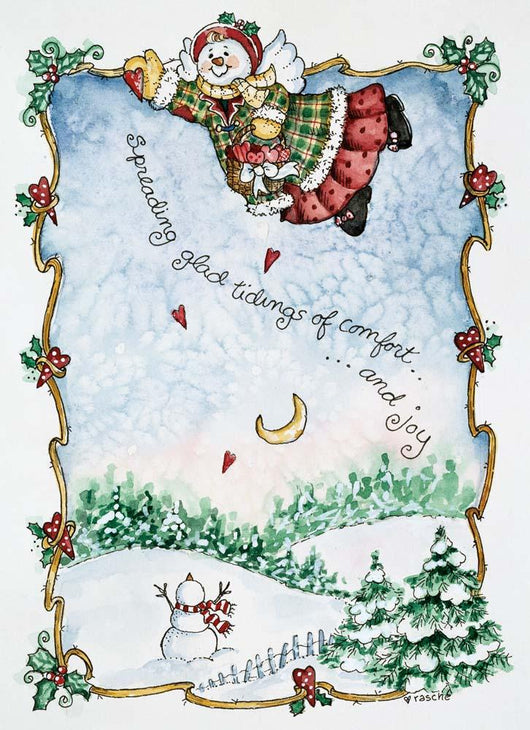 Spreading glad tidings of comfort...
... and joy
rasche